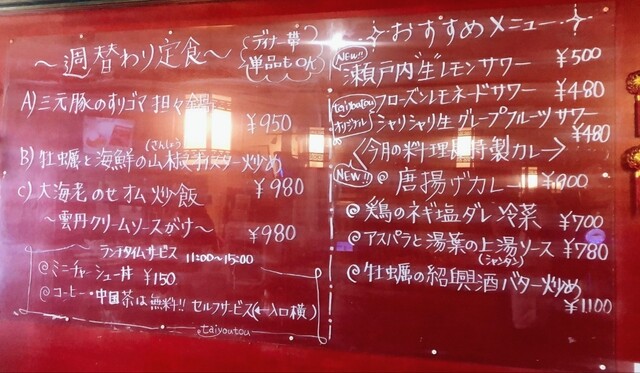 ～週替わり定食～
ディナー帯
単品もOK
A)三元豚のすりゴマ担々鍋
¥950
(さんしょう)
B)牡蠣と海鮮の山椒オイスター炒め
¥980
C)大海老のせオム炒飯
～雲丹クリームソースがけ～
¥980
ランチタイムサービス 11:00～15:00
@ミニチャーシュー丼 ¥150
@コーヒー・中国茶は無料!! セルフサービス(←入口横)
@taiyoutou
おすすめメニュー
NEW!!
瀬戸内"生"レモンサワー ¥500
taiyoutou
オリジナル
フローズンレモネードサワー ¥480
シャリシャリ生グレープフルーツサワー
¥480
〈今月の料理長特製カレー〉
NEW!!
@唐揚げカレー ¥900
@鶏のネギ塩ダレ冷菜
¥700
@アスパラと湯葉の上湯ソース ¥780
(シャンタン)
@牡蠣の紹興酒バター炒め
¥1100